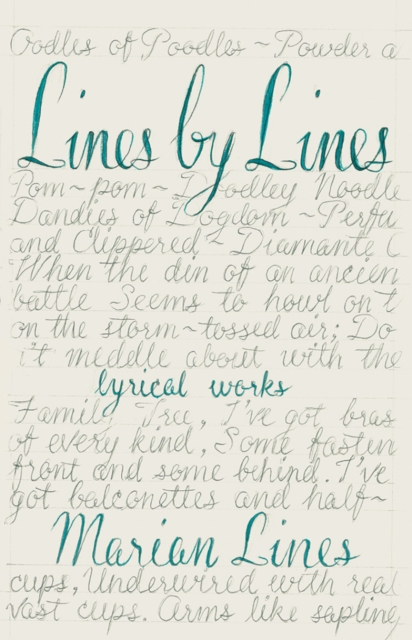 Oodles of Poodles ~ Powder a
Lines by Lines
Pom~pom~ Doodley Noodle
Dandies of Dogdom ~ Perfu
and Clippered ~ Diamante
When the din of an ancien
battle Seems to howl on t
on the storm~tossed air; Do
it meddle about with the
lyrical works
Family Tree, I've got bras
of every kind, Some fasten
front and some behind. I've
got balconettes and half~
Marian Lines
cups, Underwired with real
vast cups. Arms like sapling